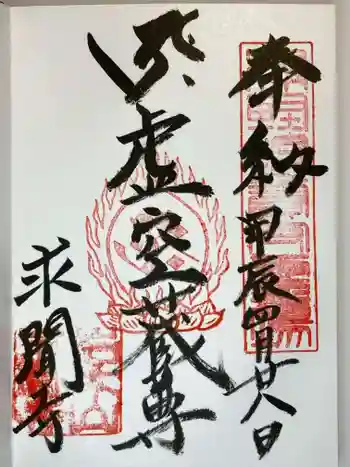 奉納 甲辰四月廿八日
虚空蔵尊
求聞寺